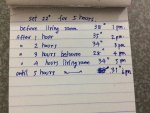 Set 22° for 5 hours
before living room 35° 1pm.
after 1 hour 35° 2pm.
" 2 hours 34° 3pm.
" 3 hours between 28° 4pm.
" 4 hours living room 34° 5pm.
until 5 hours 31° 6pm.